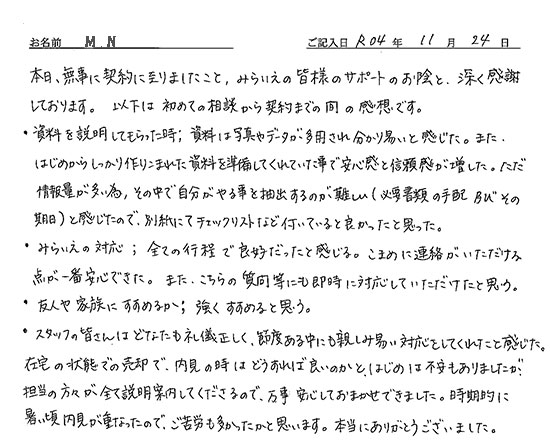 お名前 M.N ご記入日 R04 年 11 月 24 日
本日、無事に契約に至りましたこと、みらいえの皆様のサポートのお陰と、深く感謝
しております。以下は初めての相談から契約までの間の感想です。
・資料を説明してもらった時；資料は写真やデータが多用され分かり易いと感じた。また、
はじめからしっかり作りこまれた資料を準備してくれていた事で安心感と信頼感が増した。ただ
情報量が多い為、その中で自分がやる事を抽出するのが難しい（必要書類の手配 及びその
期日）と感じたので、別紙にてチェックリストなど付いていると良かったと思った。
・みらいえの対応；全ての行程で良好だったと感じる。こまめに連絡がいただける
点が一番安心できた。また、こちらの質問等にも即時に対応していただけたと思う。
・友人や家族にすすめるか；強くすすめると思う。
・スタッフの皆さんはどなたも礼儀正しく、節度ある中にも親しみ易い対応をしてくれたと感じた。
在宅の状態での売却で、内見の時はどうすれば良いのかと、はじめは不安もありましたが、
担当の方々が全て説明案内してくださるので、万事安心しておまかせできました。時期的に
暑い頃内見が重なったので、ご苦労も多かったかと思います。本当にありがとうございました。